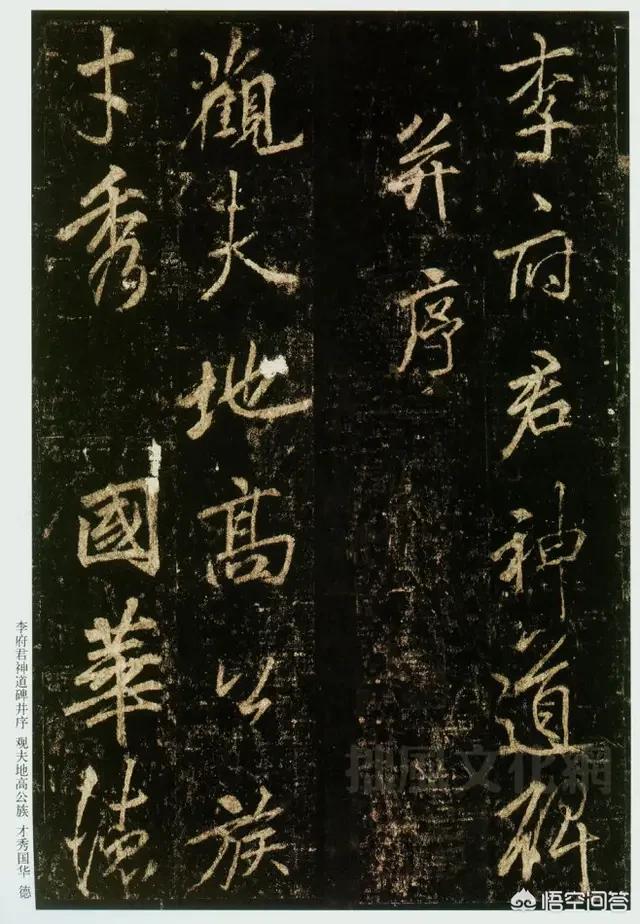 李府君神道碑
并序
觀夫地高公族
才秀國華德
李府君神道碑并序 观夫地高公族 才秀国华 德
拙風文化網
悟空问答